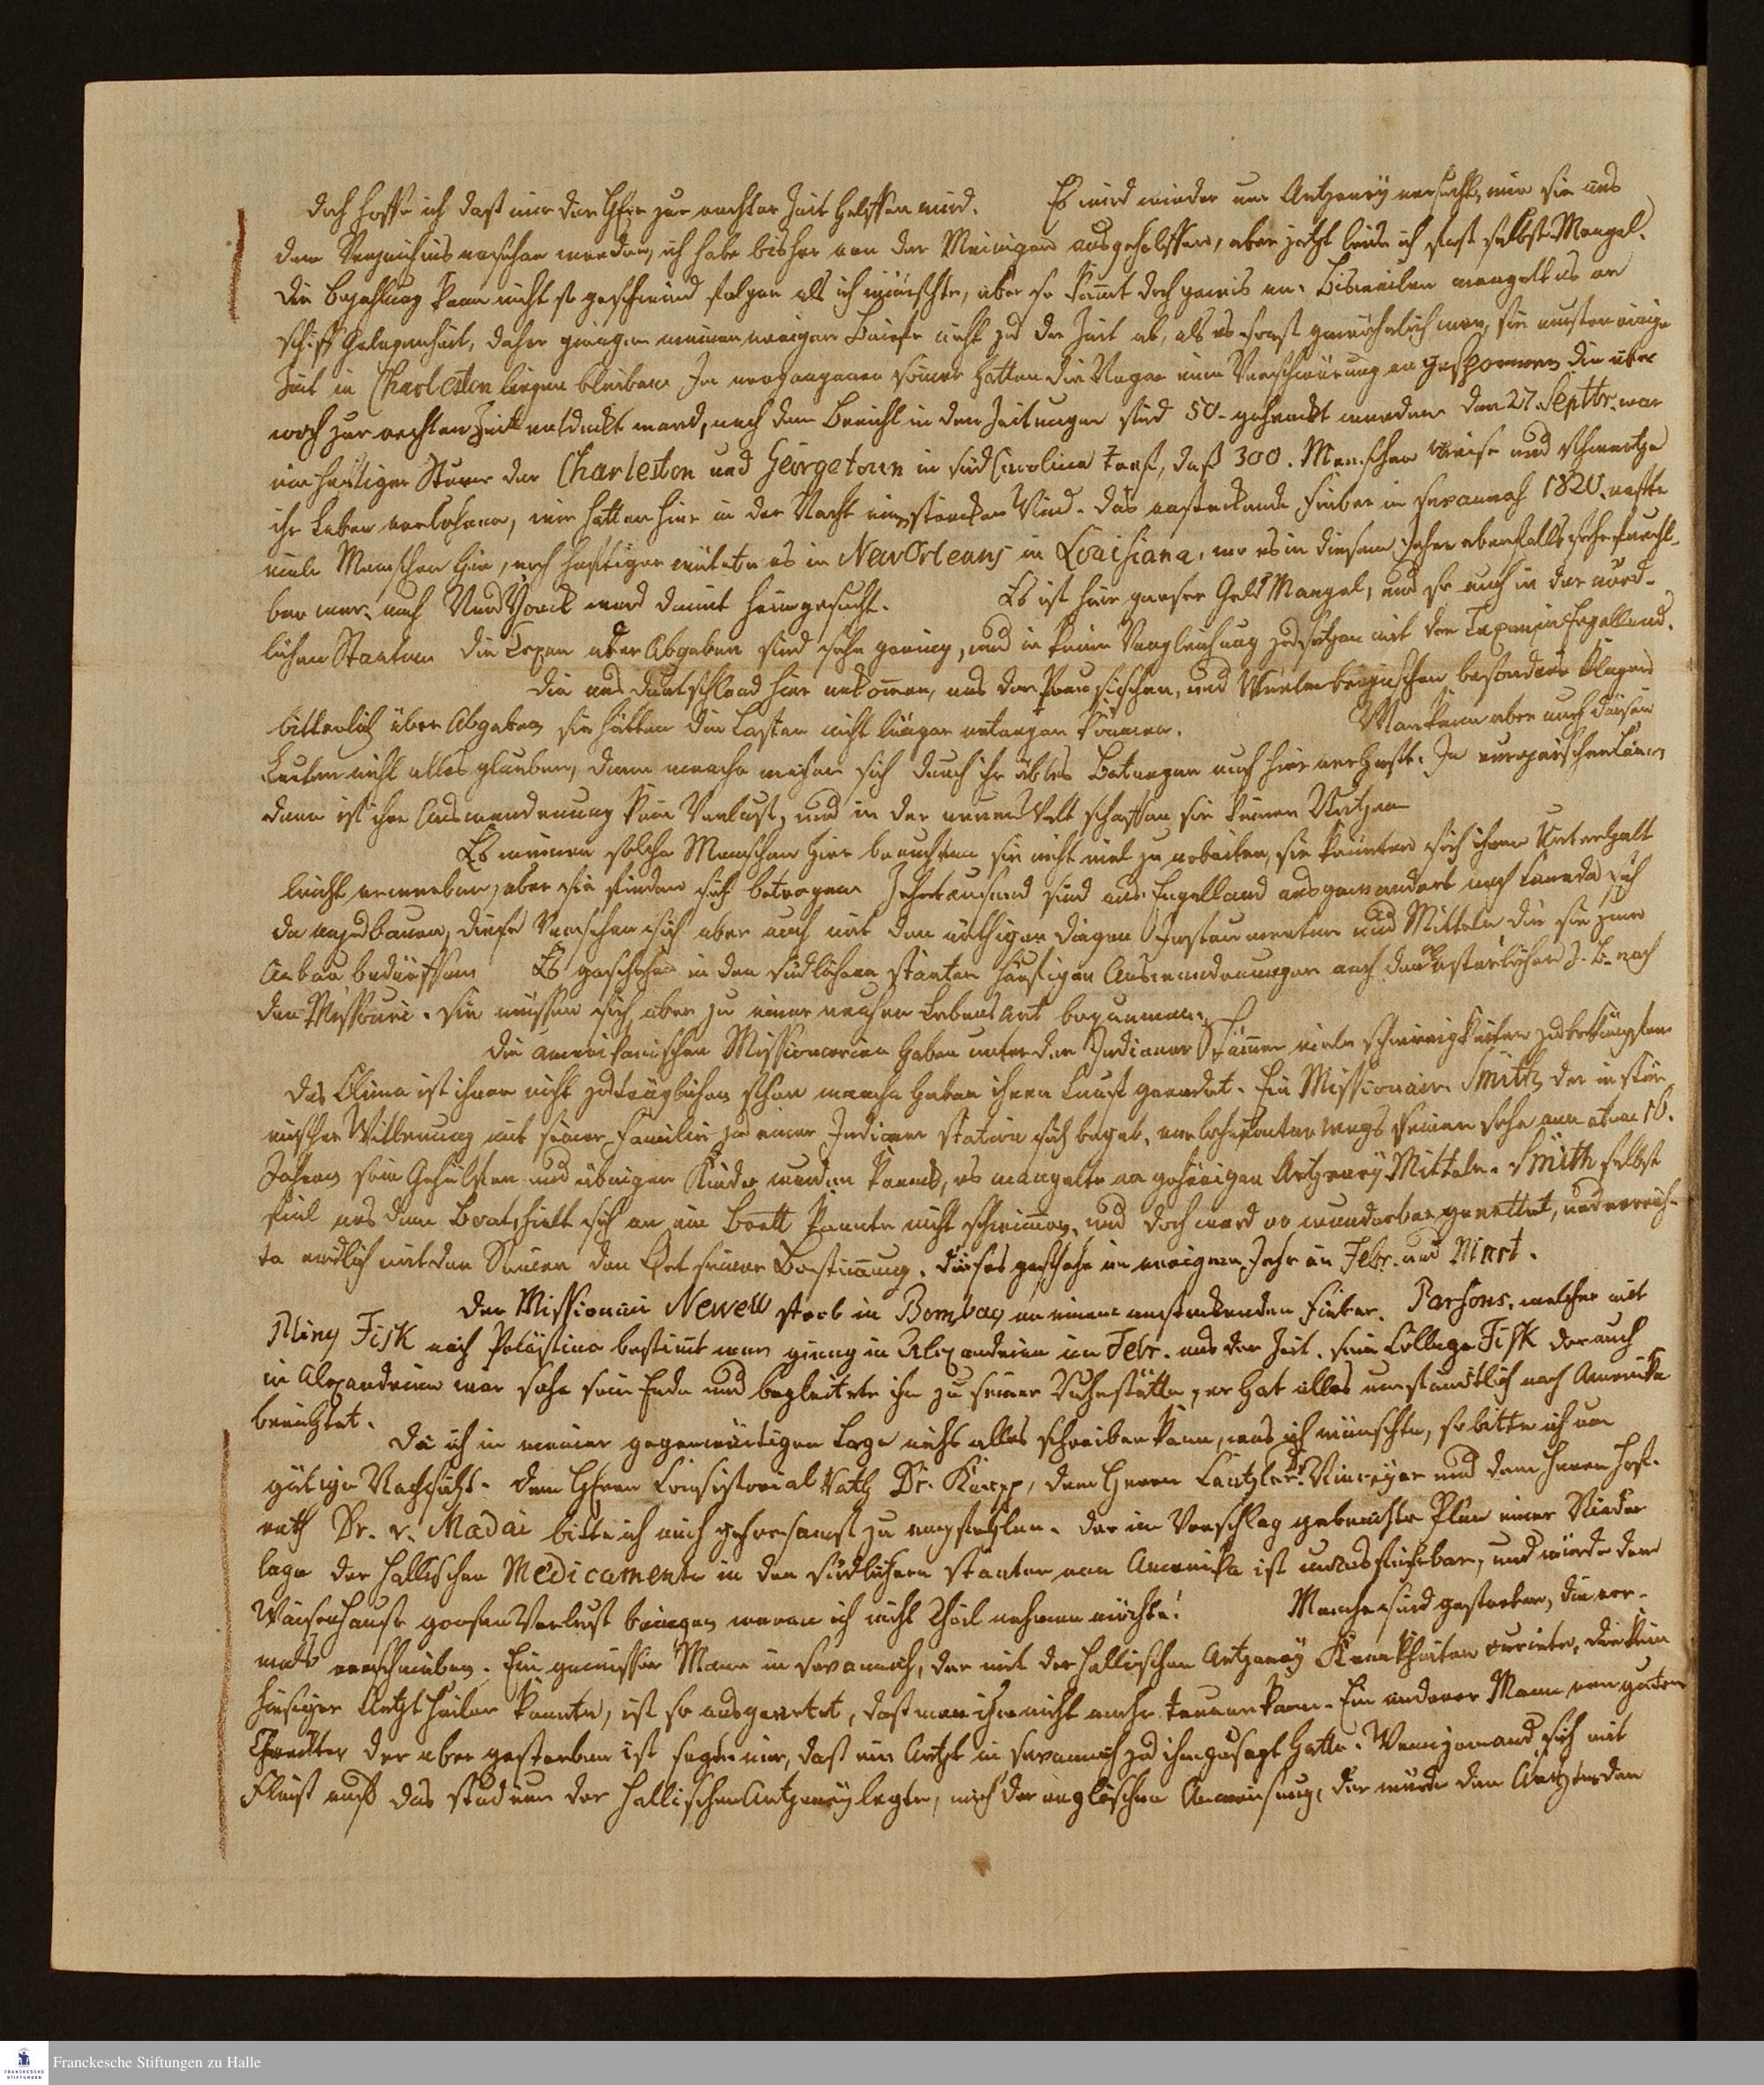 doch hoffe ich daß mir der Herr zur rechter Zeit helffen wird. Es wird wieder um Artzeney ersucht, wie sie aus
dem Verzeichnis ersehen werden, ich habe bisher von der Meinigen ausgeholffen, aber jetzt leide ich fast selbst Mangel.
Die Bezahlung kann nicht so geschwind folgen als ich wünschte, aber sie kommt doch gewis an. Bisweilen mangelt es an
schiff Gelegenheit, daher giengen meine vorigen Briefe nicht zu der Zeit ab, als es sonst gewöhnlich war, sie musten einige
Zeit in Charleston liegen bleiben. Im vergangenen Sommer hatten die Neger eine Verschwörung an gesponnen die aber
noch zur rechten Zeit entdeckt ward, nach dem Bericht in den Zeitungen sind 50 gehenckt worden. Den 27. Septbr. war
ein heftiger Sturm der Charleston und Georgetown in Süd Carolina traf, daß 300. Menschen weise und schwartze
ihr Leben verlohren, wir hatten hier in der Nacht einen starcken Wind. Das ansteckende Fieber in Savannah 1820. rafte
viele Menschen hin, noch heftiger wütete es in NewOrleans in Louisiana, wo es in diesem Jahr ebenfalls sehr furcht-
bar war. auch Neu Yorck ward damit heimgesucht. Es ist hier groser Geld Mangel, und so auch in den nörd-
lichen Staaten. Die Taxen oder Abgaben sind sehr gering, und in keine Vergleichung zu setzen mit den Taxen in Engelland.
Die aus Deutschland hier ankommen, aus dem Preusischen, und Würtembergischen besonders klagen
bitterlich über Abgaben, sie hätten die Lasten nicht länger ertragen können. Man kann aber auch diesen
Leuten nicht alles glauben, denn manche machen sich durch ihr übles Betragen auch hier verhast. In europaischen Län-
dern ist ihre Auswanderung kein Verlust, und in der neuen Welt schaffen sie keinen Nutzen
Es meinen solche Menschen hier brauchten sie nicht viel zu arbeiten, sie könnten sich ihren Unterhalt
leicht erwerben, aber sie finden sich betrogen. Zehntausend sind aus Engelland ausgewandert nach Canada sich
da anzubauen, diese versehen sich aber auch mit den nöthigen Dingen Instrumenten und Mitteln die sie zum
Anbau bedürffen. Es geschehen in den südlichern Staaten häufigen Auswanderungen nach den westerlichen z. B. nach
den Missouri. Sie müssen sich aber zu einer rauhen Lebens Art bequemen.
Die americanischen Missionarien haben unter den Indianer Stämmen viele Schwierigkeiten zu bekämpfen.
Das Clima ist ihnen nicht zuträglich, schon manche haben ihren Lauf geendet. Ein Missionair Smith der in stür-
mischer Witterung mit seiner Familie zu einer Indianer station sich begab, verlohr unterwegs seinen Sohn von etwa 16.
Jahren, sein Gehülffen und übrigen Kinder wurden kranck, es mangelte an gehörigen Artzeney Mitteln. Smith selbst
fiel aus dem Boot, hielt sich an ein Brett konnte nicht schwimmen, und doch ward er wunderbar gerettet, und erreich-
te endlich mit den Seinen den Ort seiner Bestimmung. Dieses geschahe im vorigen Jahr im Febr. und Mert.
Der Missionair Newell starb in Bombay an einem ansteckenden Fieber. Parsons, welcher mit
Pliny Fisk nach Palästina bestimt war gieng in Alexandrien im Febr. aus der Zeit. Sein College Fisk der auch
in Alexandrien war sahe sein Ende und begleitete ihn zu seiner Ruhestätte, er hat alles umständlich nach America
berichtet.
Da ich in meiner gegenwärtigen Lage nicht alles schreiben kann, was ich wünschte, so bitte ich um
gütige Nachsicht. Dem Herrn Consistorial Rath Dr. Knapp, dem Herrn Cantzler Dr. Niemeyer und dem Herrn Hof-
rath Dr. v. Madai bitte ich mich gehorsamst zu empfehlen. Der in Vorschlag gebrachte Plan einer Nieder
lage der Hallischen Medicamente in den südlichern Staaten von America ist unausführbar, und würde dem
Waisenhause grosen Verlust bringen, woran ich nicht Theil nehmen möchte! Manche sind gestorben, die vor-
mals verschrieben. Ein gewisser Mann in Savannah, der mit der Hallischen Artzeney Kranckheiten curirte, die kein
hiesiger Artzt heilen konnte, ist so ausgeartet, daß man ihm nicht mehr trauen kann. Ein anderer Mann von guten
Charakter der aber gestorben ist sagte mir, daß ein Artzt in Savannah zu ihm gesagt hatte: Wenn jemand sich mit
Fleiß auf das studium der Hallischen Artzeney legte, nach der englischen Anweisung, der würde den Ärtzten den
Franckesche Stiftungen zu Halle